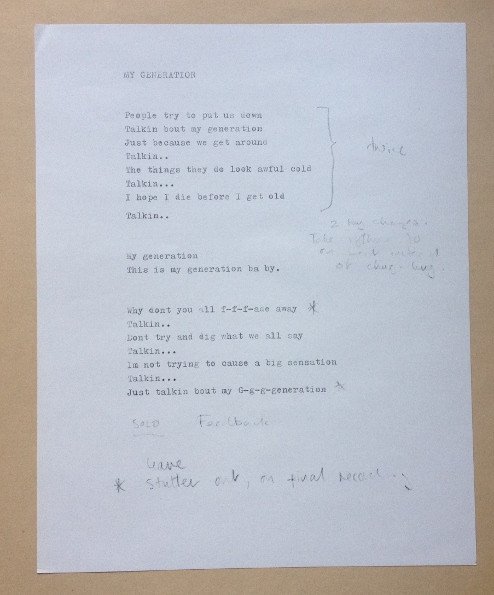 MY GENERATIOR
People try to put us down
Talkin bout my generation
Just because we get around
Talkin..
The things they do look awful cold
Talkin...
I hope I die before I get old
Talkin..
twice
2 key changes.
Take
My generation
This is my generation ba by.
Why dont you all f-f-f-ade away *
Talkin..
Dont try and dig what we all say
Talkin...
Im not trying to cause a big sensation
Talkin...
Just talkin bout my G-g-g-generation *
SOLO Feedback
Leave
* Stutter out, on final record..